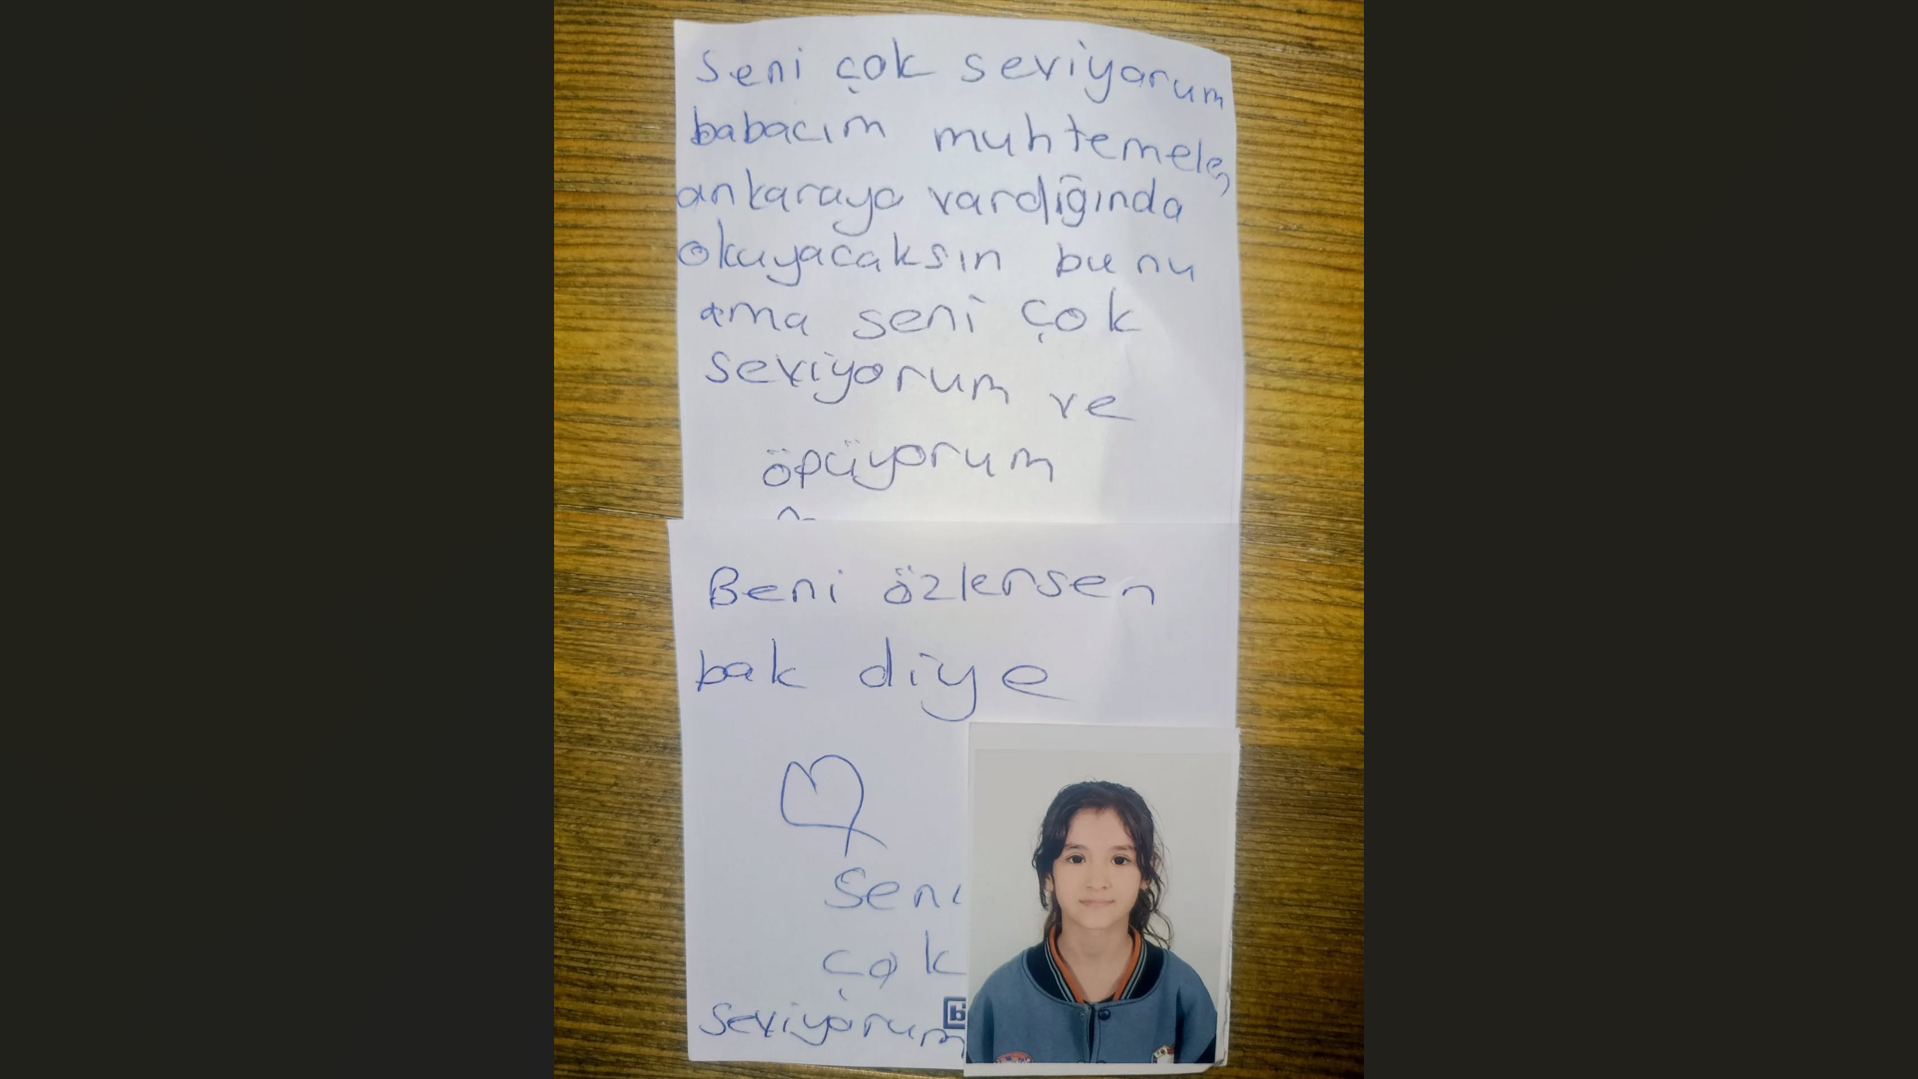 Seni çok seviyorum
babacım muhtemelen
ankaraya vardığında
okuyacaksın bunu
ama seni çok
seviyorum ve
öpüyorum
Beni özlersen
bak diye
Seni
çok
seviyorum